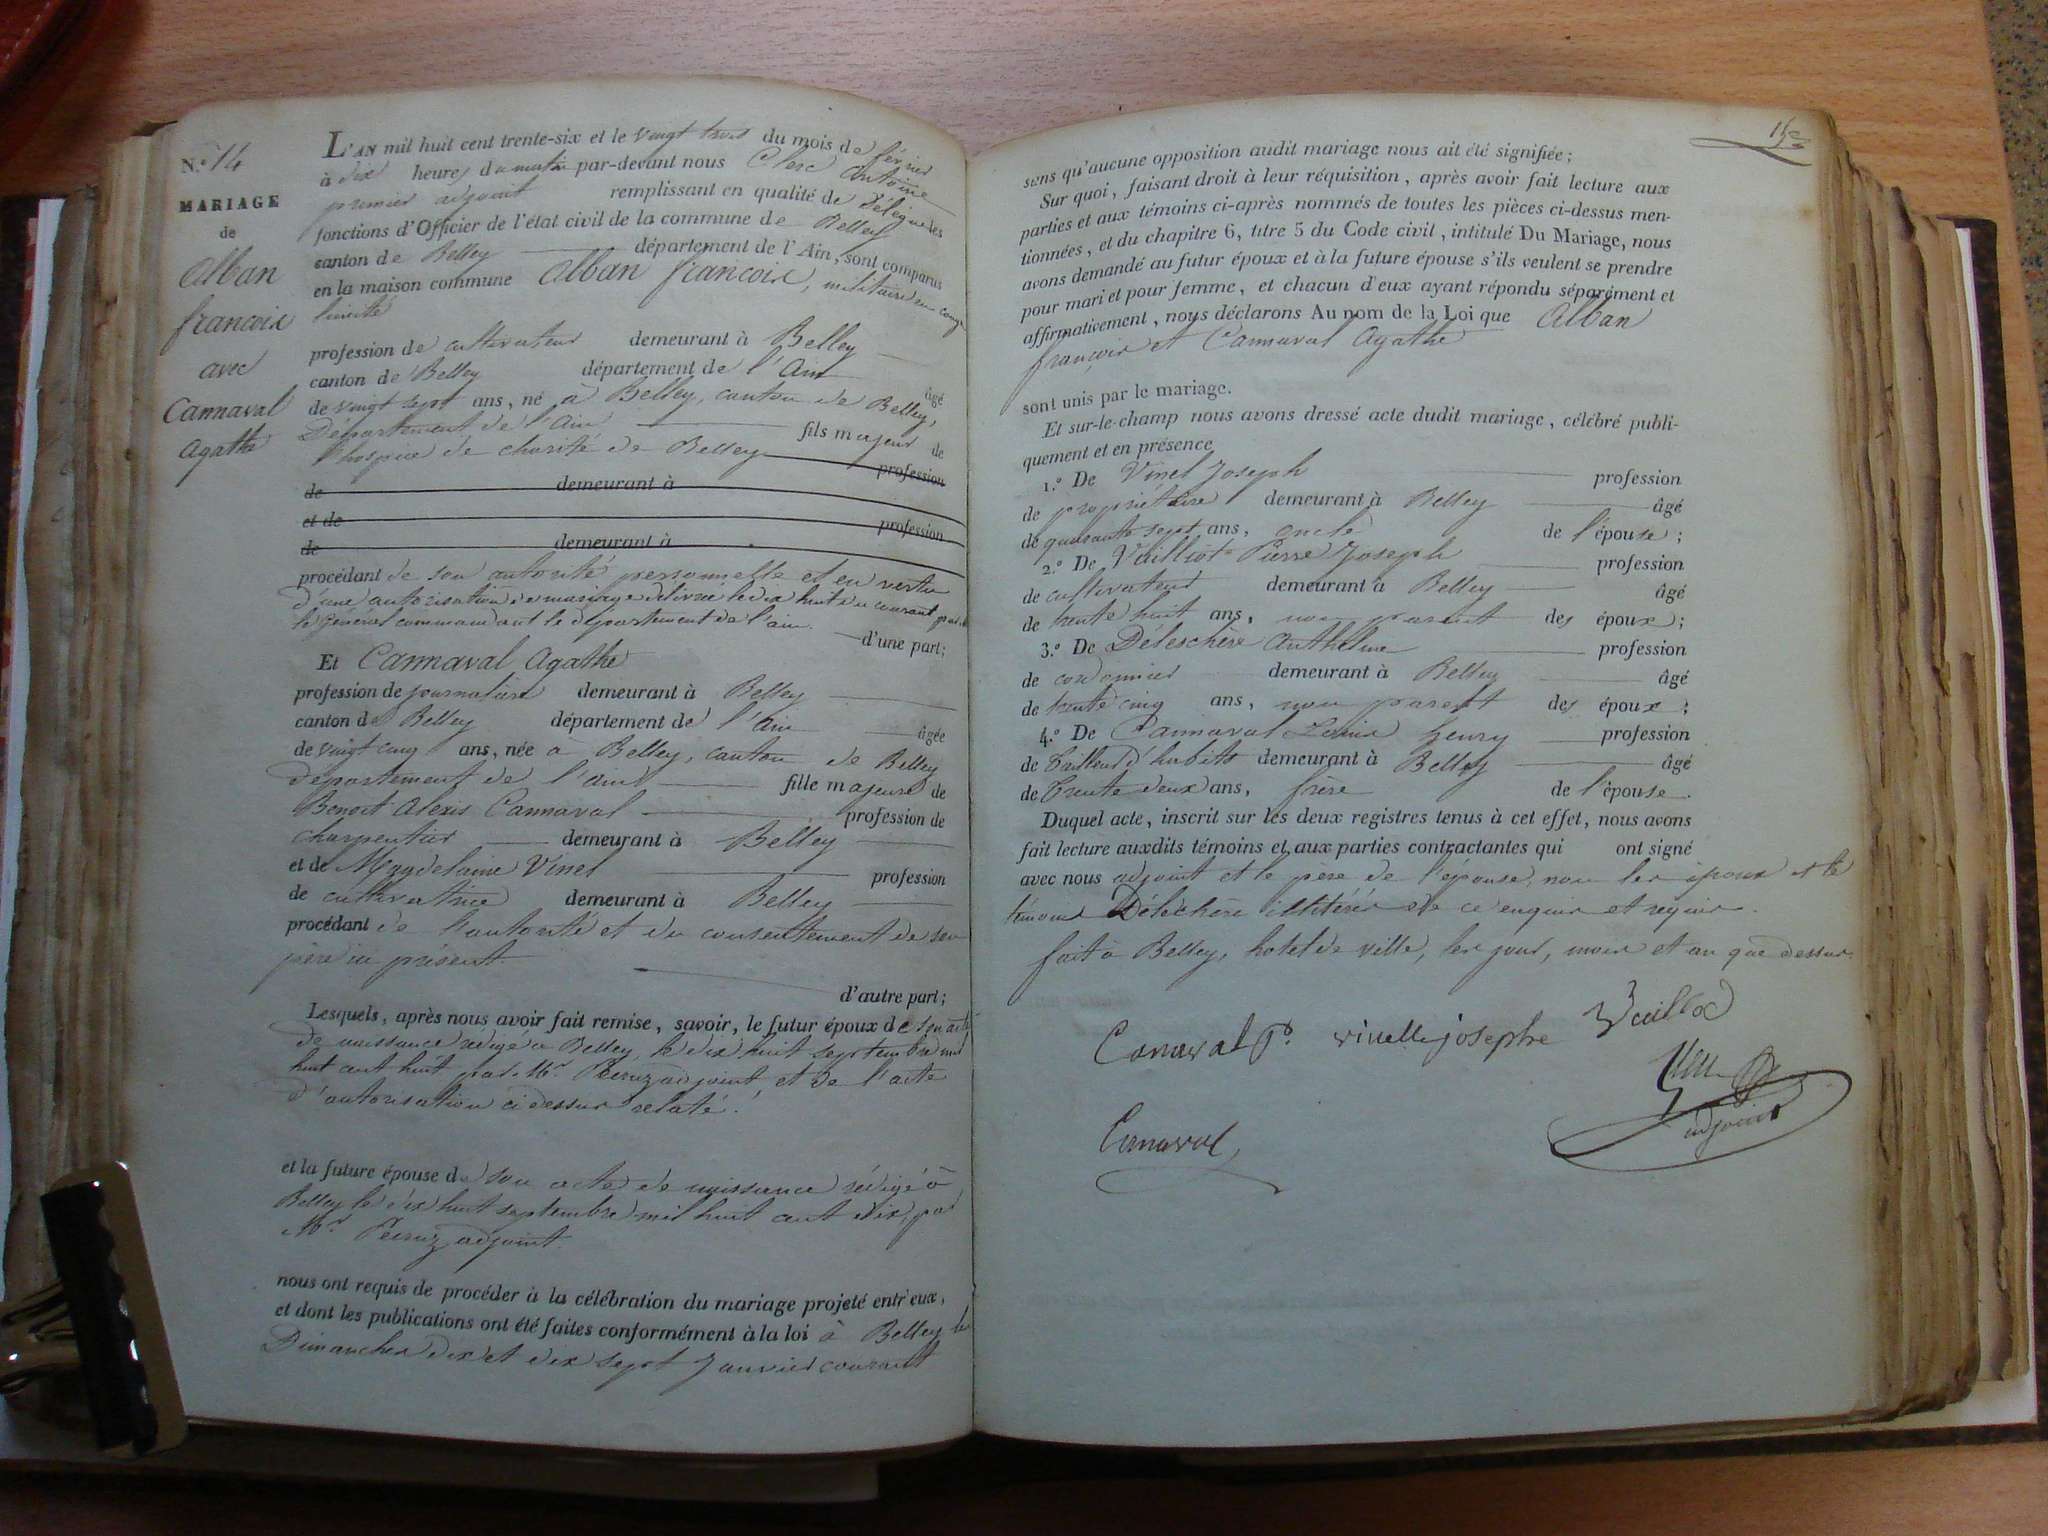 N.º 14
MARIAGE
de
Alban
francois
avec
Cannaval
Agathe
L'AN mil huit cent trente-six et le vingt trois du mois de février
à dix heures du matin par-devant nous Clerc Antoine
premier adjoint remplissant en qualité de délégué les
fonctions d'Officier de l'état civil de la commune de Belley
canton de Belley département de l'Ain, sont comparus
en la maison commune Alban francois, militaire en congé
limité
profession de cultivateur demeurant à Belley
canton de Belley département de l'Ain âgé
de vingt sept ans, né à Belley, canton de Belley,
Département de l'Ain fils majeur de
l'hospice de charité de Belley profession
de demeurant à
et de profession
de demeurant à
procédant de son autorité personnelle et en vertu
d'une autorisation de mariage délivrée le dix huit du courant par
le général commandant le département de l'ain. d'une part;
Et Cannaval Agathe
profession de journalière demeurant à Belley
canton de Belley département de l'Ain âgée
de vingt cinq ans, née à Belley, canton de Belley
département de l'ain fille majeure de
Benoit Alexis Cannaval profession de
charpentier demeurant à Belley
et de Magdelaine Vinel profession
de cultivatrice demeurant à Belley
procédant de l'autorité et du consentement de son
père ici présent
d'autre part;
Lesquels, après nous avoir fait remise, savoir, le futur époux de son acte
de naissance rédigé à Belley, le dix huit septembre mil
huit cent huit par Mr. adjoint, et de l'acte
d'autorisation ci dessus relaté.
et la future épouse de son acte de naissance rédigé à
Belley le dix huit septembre mil huit cent dix, par
Mr. adjoint.
nous ont requis de procéder à la célébration du mariage projeté entr'eux,
et dont les publications ont été faites conformément à la loi à Belley les
Dimanches dix et dix sept Janvier courant
sans qu'aucune opposition audit mariage nous ait été signifiée;
Sur quoi, faisant droit à leur réquisition, après avoir fait lecture aux
parties et aux témoins ci-après nommés de toutes les pièces ci-dessus men-
tionnées, et du chapitre 6, titre 5 du Code civil, intitulé Du Mariage, nous
avons demandé au futur époux et à la future épouse s'ils veulent se prendre
pour mari et pour femme, et chacun d'eux ayant répondu séparément et
affirmativement, nous déclarons Au nom de la Loi que Alban
françois et Cannaval Agathe
sont unis par le mariage.
Et sur-le-champ nous avons dressé acte dudit mariage, célébré publi-
quement et en présence
1.º De Vinel Joseph profession
de propriétaire demeurant à Belley âgé
de quarante sept ans, oncle de l'épouse;
2.º De Vailliot Pierre Joseph profession
de cultivateur demeurant à Belley âgé
de trente huit ans, non parent des époux;
3.º De Deleschère Anthelme profession
de cordonnier demeurant à Belley âgé
de trente cinq ans, non parent des époux;
4.º De Cannaval Louis henry profession
de Tailleur d'habits demeurant à Belley âgé
de trente deux ans, frère de l'épouse.
Duquel acte, inscrit sur les deux registres tenus à cet effet, nous avons
fait lecture auxdits témoins et aux parties contractantes qui ont signé
avec nous adjoint et le père de l'épouse, non les époux et le
témoin Délechère illitérés de ce enquis et requis.
fait à Belley, hotel de ville, les jour, mois et an que dessus.
Canaval vinelle josephe
adjoint
Canaval